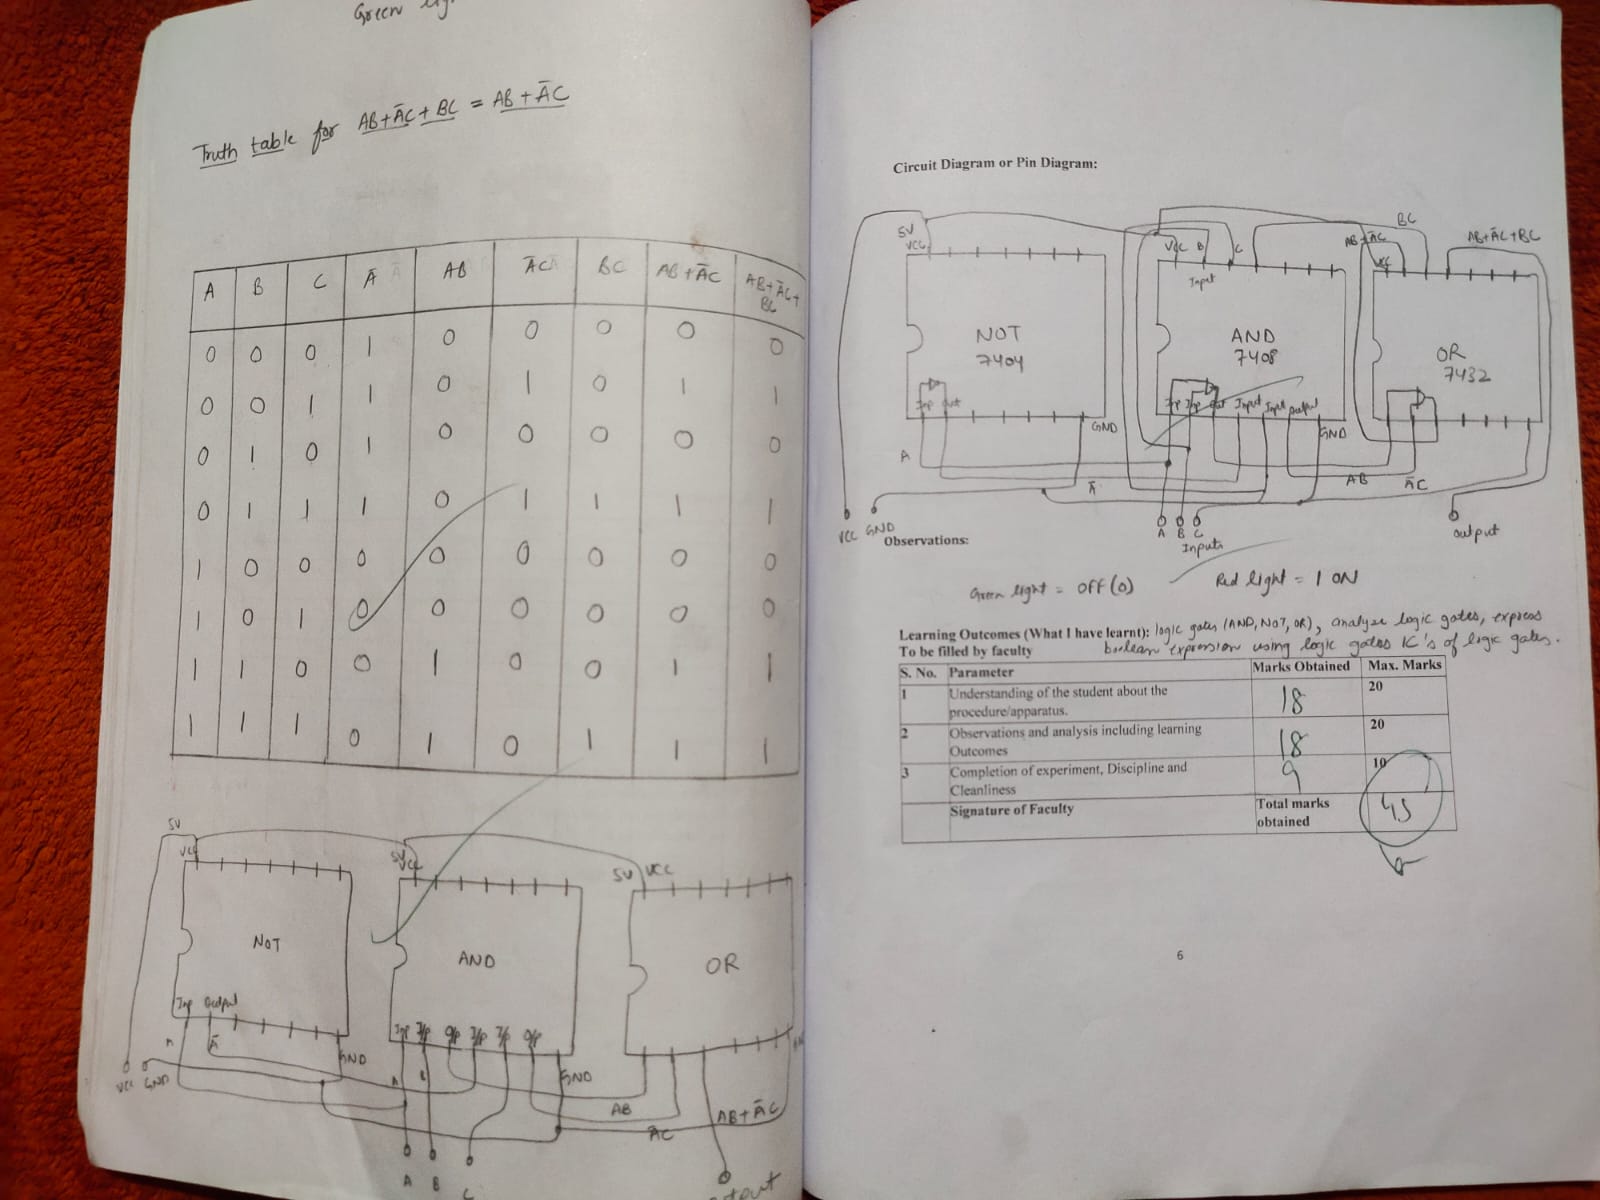 Green lig
Truth table for AB+A̅C+BC = AB+A̅C
A B C A̅ AB A̅C BC AB+A̅C AB+A̅C+BC
0 0 0 1 0 0 0 0 0
0 0 1 1 0 1 0 1 1
0 1 0 1 0 0 0 0 0
0 1 1 1 0 1 1 1 1
1 0 0 0 0 0 0 0 0
1 0 1 0 0 0 0 0 0
1 1 0 0 1 0 0 1 1
1 1 1 0 1 0 1 1 1
5V
VCC
5V
VCC
5V VCC
NOT
AND
OR
Inp Output
Inp I/p O/p I/p I/p O/p
A A̅
GND
A B
GND
VCC GND
AB
AB+A̅C
A̅C
A B C
output
Circuit Diagram or Pin Diagram:
5V
VCC
VCC B C
Input
BC
AB+A̅C
VCC
AB+A̅C+BC
NOT
7404
AND
7408
OR
7432
Inp Out
Inp Inp Out Input Input output
GND
GND
A
A̅
AB
A̅C
VCC GND
A B C
Inputs
output
Observations:
Green light = OFF (0) Red light = 1 ON
Learning Outcomes (What I have learnt): logic gates (AND, NOT, OR), analyze logic gates, express
To be filled by faculty boolean expression using logic gates IC's of logic gates.
S. No. Parameter Marks Obtained Max. Marks
1 Understanding of the student about the procedure/apparatus. 18 20
2 Observations and analysis including learning Outcomes 18 20
3 Completion of experiment, Discipline and Cleanliness 9 10
Signature of Faculty Total marks obtained 45
6